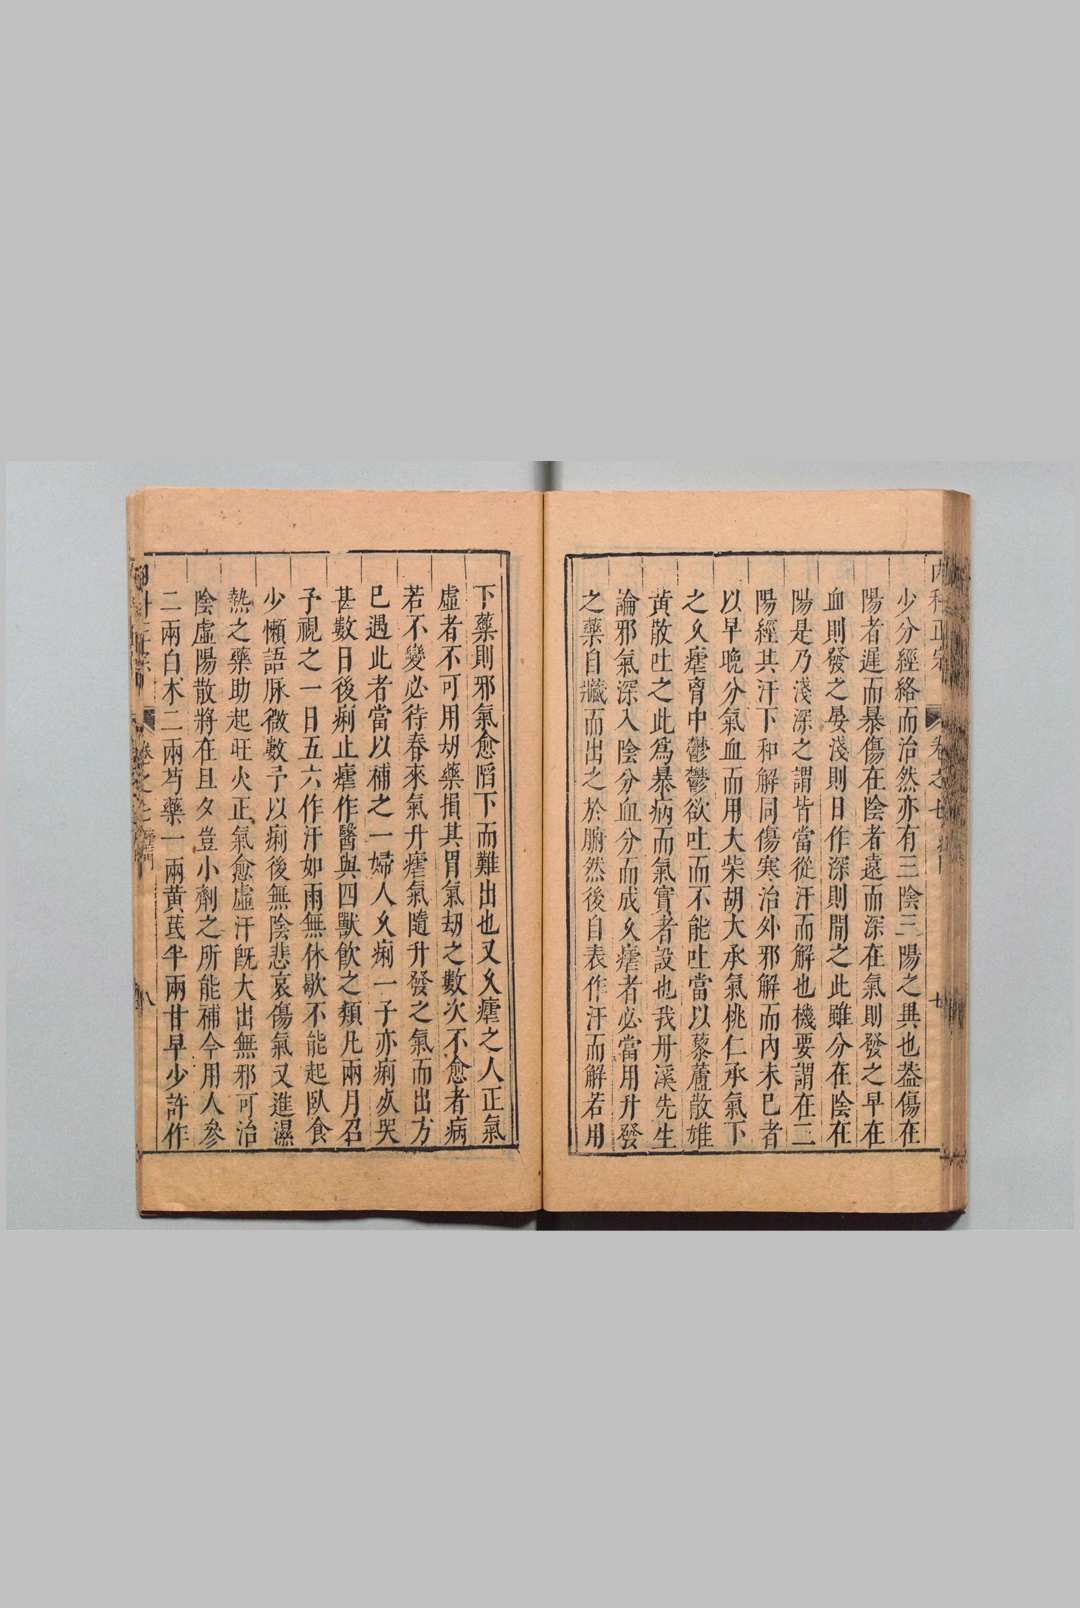 少分經絡而治然亦有三陰三陽之異也葢傷在
陽者遲而暴傷在陰者遠而深在氣則發之早在
血則發之晏淺則日作深則間之此雖分在陰在
陽是乃淺深之謂皆當從汗而解也機要謂在三
陽經其汗下和解同傷寒治外邪解而內未已者
以早晚分氣血而用大柴胡大承氣桃仁承氣下
之久瘧胷中鬱鬱欲吐而不能吐當以藜蘆散雄
黃散吐之此爲暴病而氣實者設也我丹溪先生
論邪氣深入陰分血分而成久瘧者必當用升發
之藥自臟而出之於腑然後自表作汗而解若用
下藥則邪氣愈陷下而難出也又久瘧之人正氣
虛者不可用刼藥損其胃氣刼之數次不愈者病
若不變必待春來氣升瘧氣隨升發之氣而出方
已遇此者當以補之一婦人久痢一子亦痢夾哭
甚數日後痢止瘧作醫與四獸飲之類凡兩月召
予視之一日五六作汗如雨無休歇不能起臥食
少懶語脉微數予以痢後無陰悲哀傷氣又進濕
熱之藥助起旺火正氣愈虛汗旣大出無邪可治
陰虛陽散將在旦夕豈小劑之所能補今用人參
二兩白术二兩芍藥一兩黃芪半兩甘草少許作
內科正宗 卷之七 七
卷之七 瘧門 八